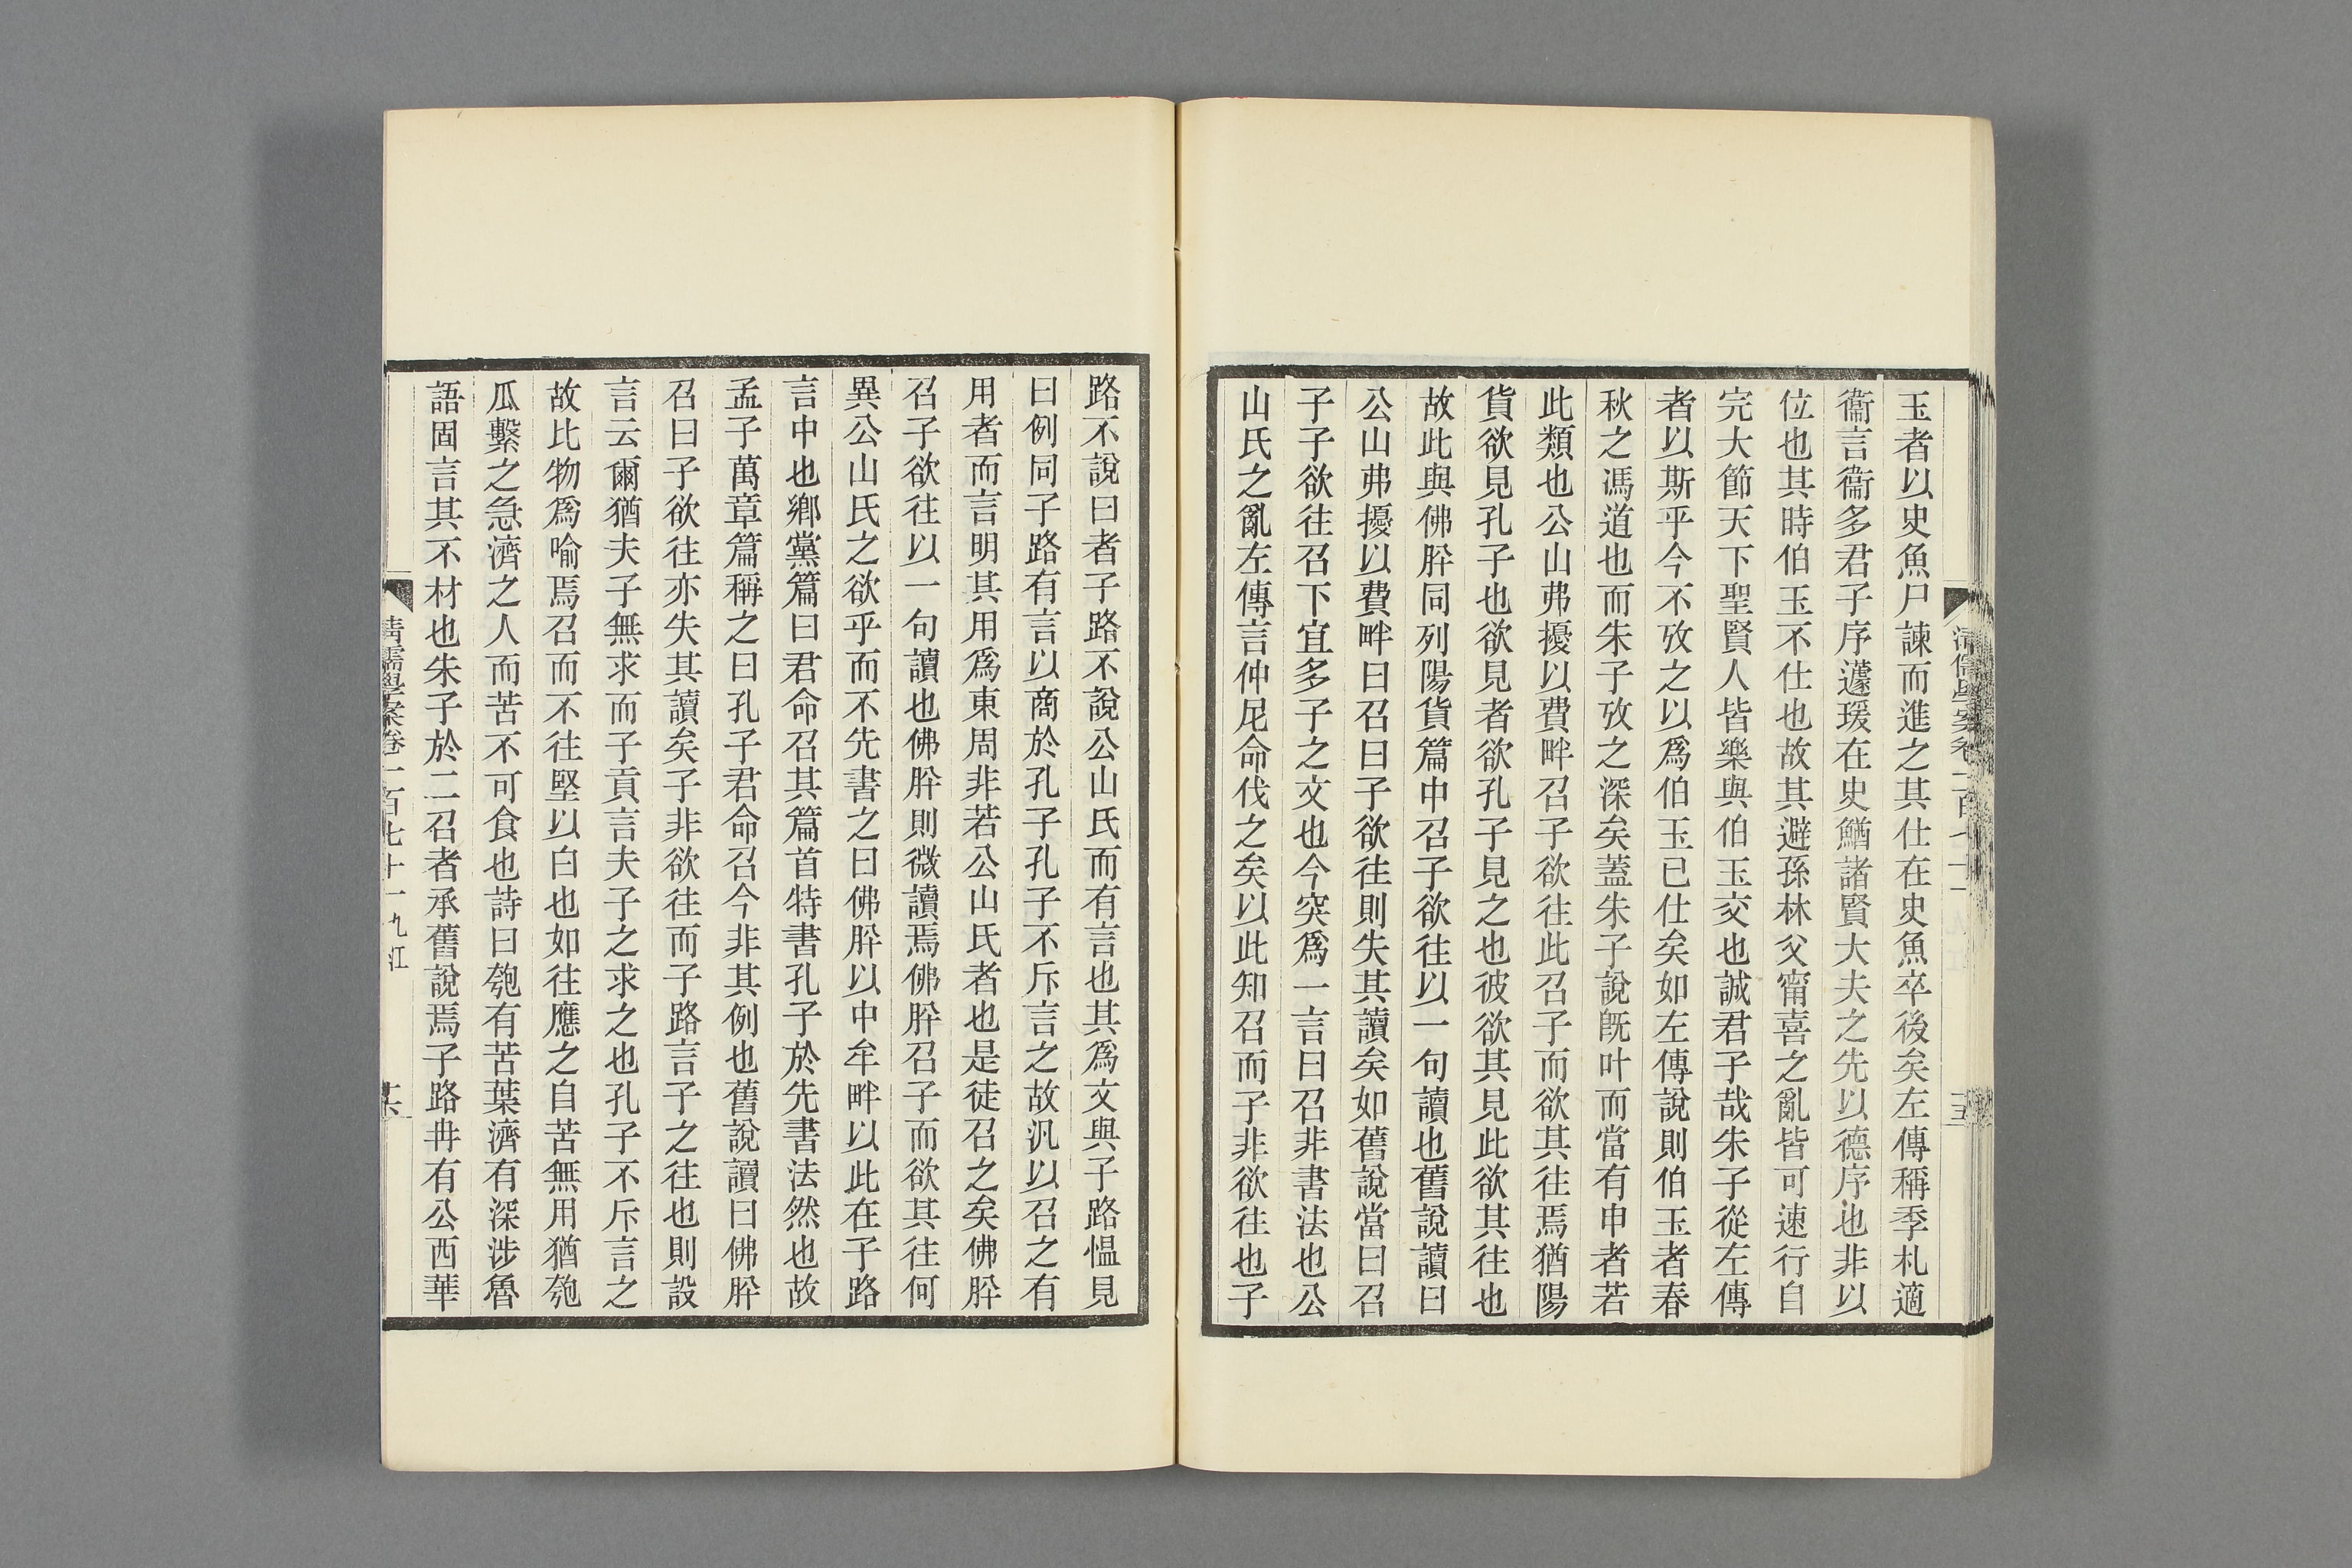 玉者以史魚尸諫而進之其仕在史魚卒後矣左傳稱季札適
衞言衞多君子序蘧瑗在史鰌諸賢大夫之先以德序也非以
位也其時伯玉不仕也故其避孫林父甯喜之亂皆可速行自
完大節天下聖賢人皆樂與伯玉交也誠君子哉朱子從左傳
者以斯乎今不攷之以爲伯玉已仕矣如左傳說則伯玉者春
秋之馮道也而朱子攷之深矣蓋朱子說旣叶而當有申者若
此類也公山弗擾以費畔召子欲往此召子而欲其往焉猶陽
貨欲見孔子也欲見者欲孔子見之也彼欲其見此欲其往也
故此與佛肸同列陽貨篇中召子欲往以一句讀也舊說讀曰
公山弗擾以費畔曰召曰子欲往則失其讀矣如舊說當曰召
子子欲往召下宜多子之文也今突爲一言曰召非書法也公
山氏之亂左傳言仲尼命伐之矣以此知召而子非欲往也子
路不說曰者子路不說公山氏而有言也其爲文與子路慍見
曰例同子路有言以商於孔子孔子不斥言之故汎以召之有
用者而言明其用爲東周非若公山氏者也是徒召之矣佛肸
召子欲往以一句讀也佛肸則微讀焉佛肸召子而欲其往何
異公山氏之欲乎而不先書之曰佛肸以中牟畔以此在子路
言中也鄉黨篇曰君命召其篇首特書孔子於先書法然也故
孟子萬章篇稱之曰孔子君命召今非其例也舊說讀曰佛肸
召曰子欲往亦失其讀矣子非欲往而子路言子之往也則設
言云爾猶夫子無求而子貢言夫子之求之也孔子不斥言之
故比物爲喻焉召而不往堅以白也如往應之自苦無用猶匏
瓜繫之急濟之人而苦不可食也詩曰匏有苦葉濟有深涉魯
語固言其不材也朱子於二召者承舊說焉子路冉有公西華
清儒學案卷一百七十一 九江